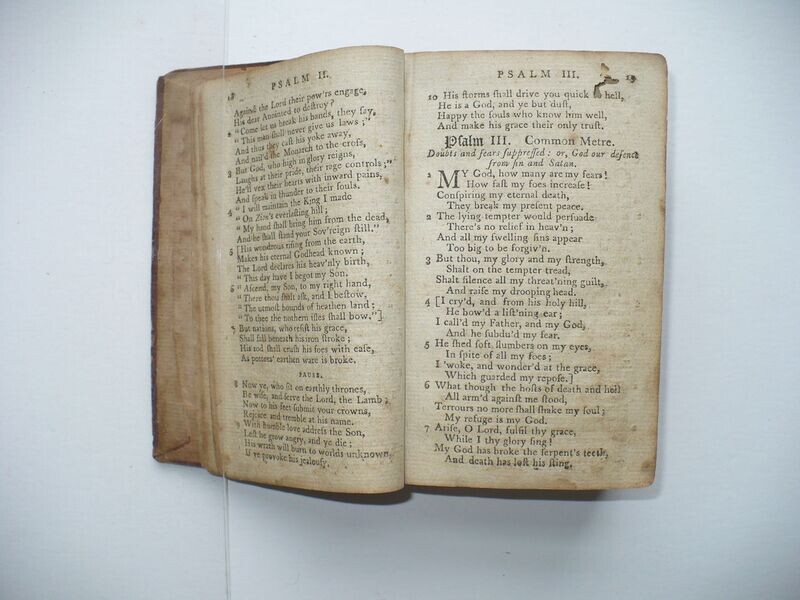 12
PSALM II.
Againſt the Lord their pow'rs engage,
His dear Anointed to deſtroy?
2 "Come let us break his bands, they ſay,
"This man ſhall never give us laws;"
And thus they caſt his yoke away,
And nail'd the Monarch to the croſs,
3 But God, who high in glory reigns,
Laughs at their pride, their rage controls;"
He'll vex their hearts with inward pains,
And ſpeak in thunder to their ſouls.
4 "I will maintain the King I made
"On Zion's everlaſting hill;
"My hand ſhall bring him from the dead,
And he ſhall ſtand your Sov'reign ſtill."
5 [His wondrous riſing from the earth,
Makes his eternal Godhead known;
The Lord declares his heav'nly birth,
"This day have I begot my Son.
6 "Aſcend, my Son, to my right hand,
"There thou ſhalt aſk, and I beſtow,
"The utmoſt bounds of heathen land;
"To thee the nothern iſles ſhall bow."]
7 But nations, who reſiſt his grace,
Shall fall beneath his iron ſtroke;
His rod ſhall cruſh his foes with eaſe,
As potters' earthen ware is broke.
PAUSE.
8 Now ye, who ſit on earthly thrones,
Be wiſe, and ſerve the Lord, the Lamb;
Now to his feet ſubmit your crowns,
Rejoice and tremble at his name.
9 With humble love addreſs the Son,
Leſt he grow angry, and ye die;
His wrath will burn to worlds unknown,
If ye provoke his jealouſy.
PSALM III.
13
10 His ſtorms ſhall drive you quick to hell,
He is a God, and ye but duſt,
Happy the ſouls who know him well,
And make his grace their only truſt.
Pſalm III. Common Metre.
Doubts and fears ſuppreſſed: or, God our defence
from ſin and Satan.
1 MY God, how many are my fears!
How faſt my foes increaſe!
Conſpiring my eternal death,
They break my preſent peace.
2 The lying tempter would perſuade
There's no relief in heav'n;
And all my ſwelling ſins appear
Too big to be forgiv'n.
3 But thou, my glory and my ſtrength,
Shalt on the tempter tread,
Shalt ſilence all my threat'ning guilt,
And raiſe my drooping head.
4 [I cry'd, and from his holy hill,
He bow'd a liſt'ning ear;
I call'd my Father, and my God,
And he ſubdu'd my fear.
5 He ſhed ſoft ſlumbers on my eyes,
In ſpite of all my foes;
I 'woke, and wonder'd at the grace,
Which guarded my repoſe.]
6 What though the hoſts of death and hell
All arm'd againſt me ſtood,
Terrours no more ſhall ſhake my ſoul;
My refuge is my God.
7 Ariſe, O Lord, fulfil thy grace,
While I thy glory ſing!
My God has broke the ſerpent's teeth,
And death has loſt his ſting.